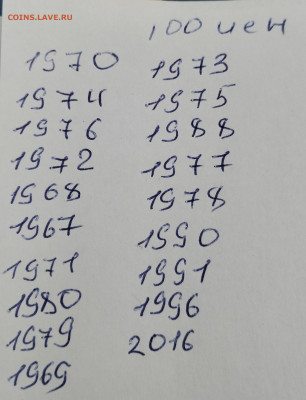 COINS.LAVE.RU
100 иен
1970 1973
1974 1975
1976 1988
1972 1977
1968 1978
1967 1990
1971 1991
1980 1996
1979 2016
1969